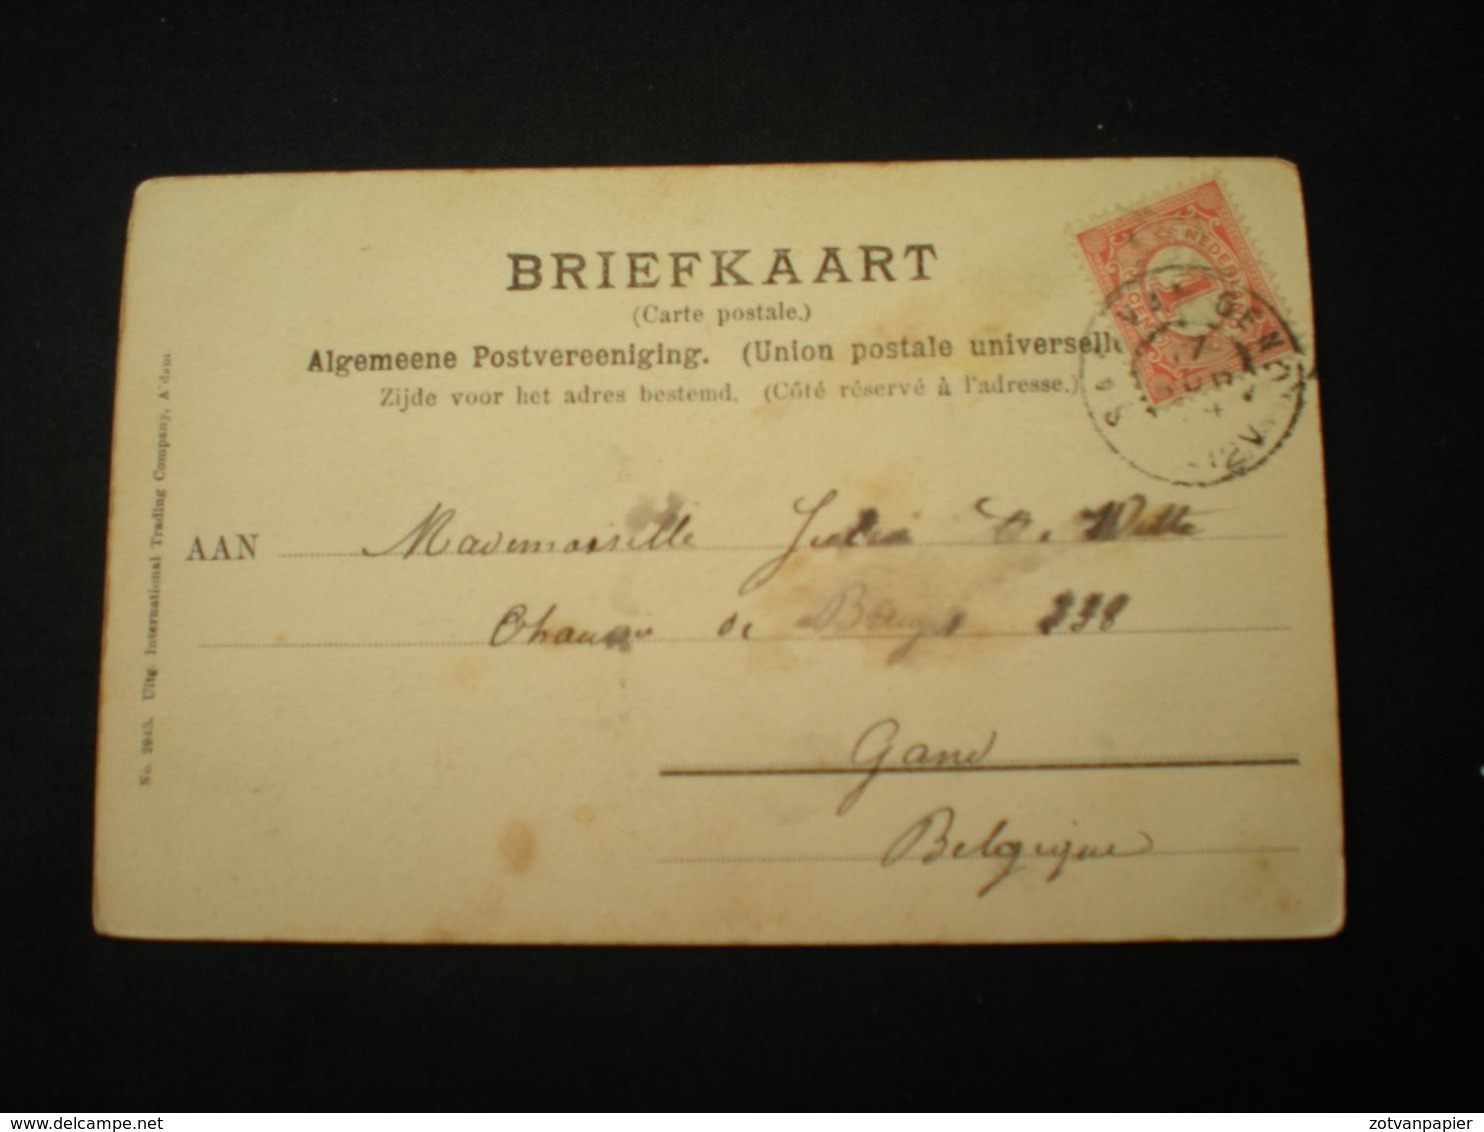 BRIEFKAART
(Carte postale.)
Algemeene Postvereeniging. (Union postale universelle
Zijde voor het adres bestemd. (Côté réservé à l'adresse.)
AAN Mademoiselle Julia De Witte
de Bruges 338
Gand
Belgique
No. 2943. Uitg. International Trading Company, A'dam.
NEDERL
1
CENT
SAS VAN GENT
delcampe.net
zotvanpapier